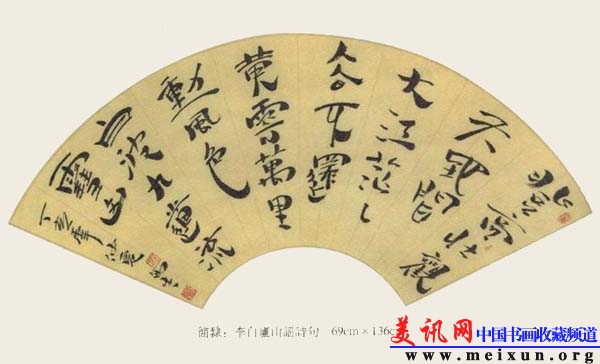 登高壯觀
天地間
大江茫々
去不還
黄雲萬里
動風色
白波九道流
雪山
丁亥
簡隸：李白廬山謡詩句 69cm×136c
美讯网 中国书画收藏频道
www.meixun.org